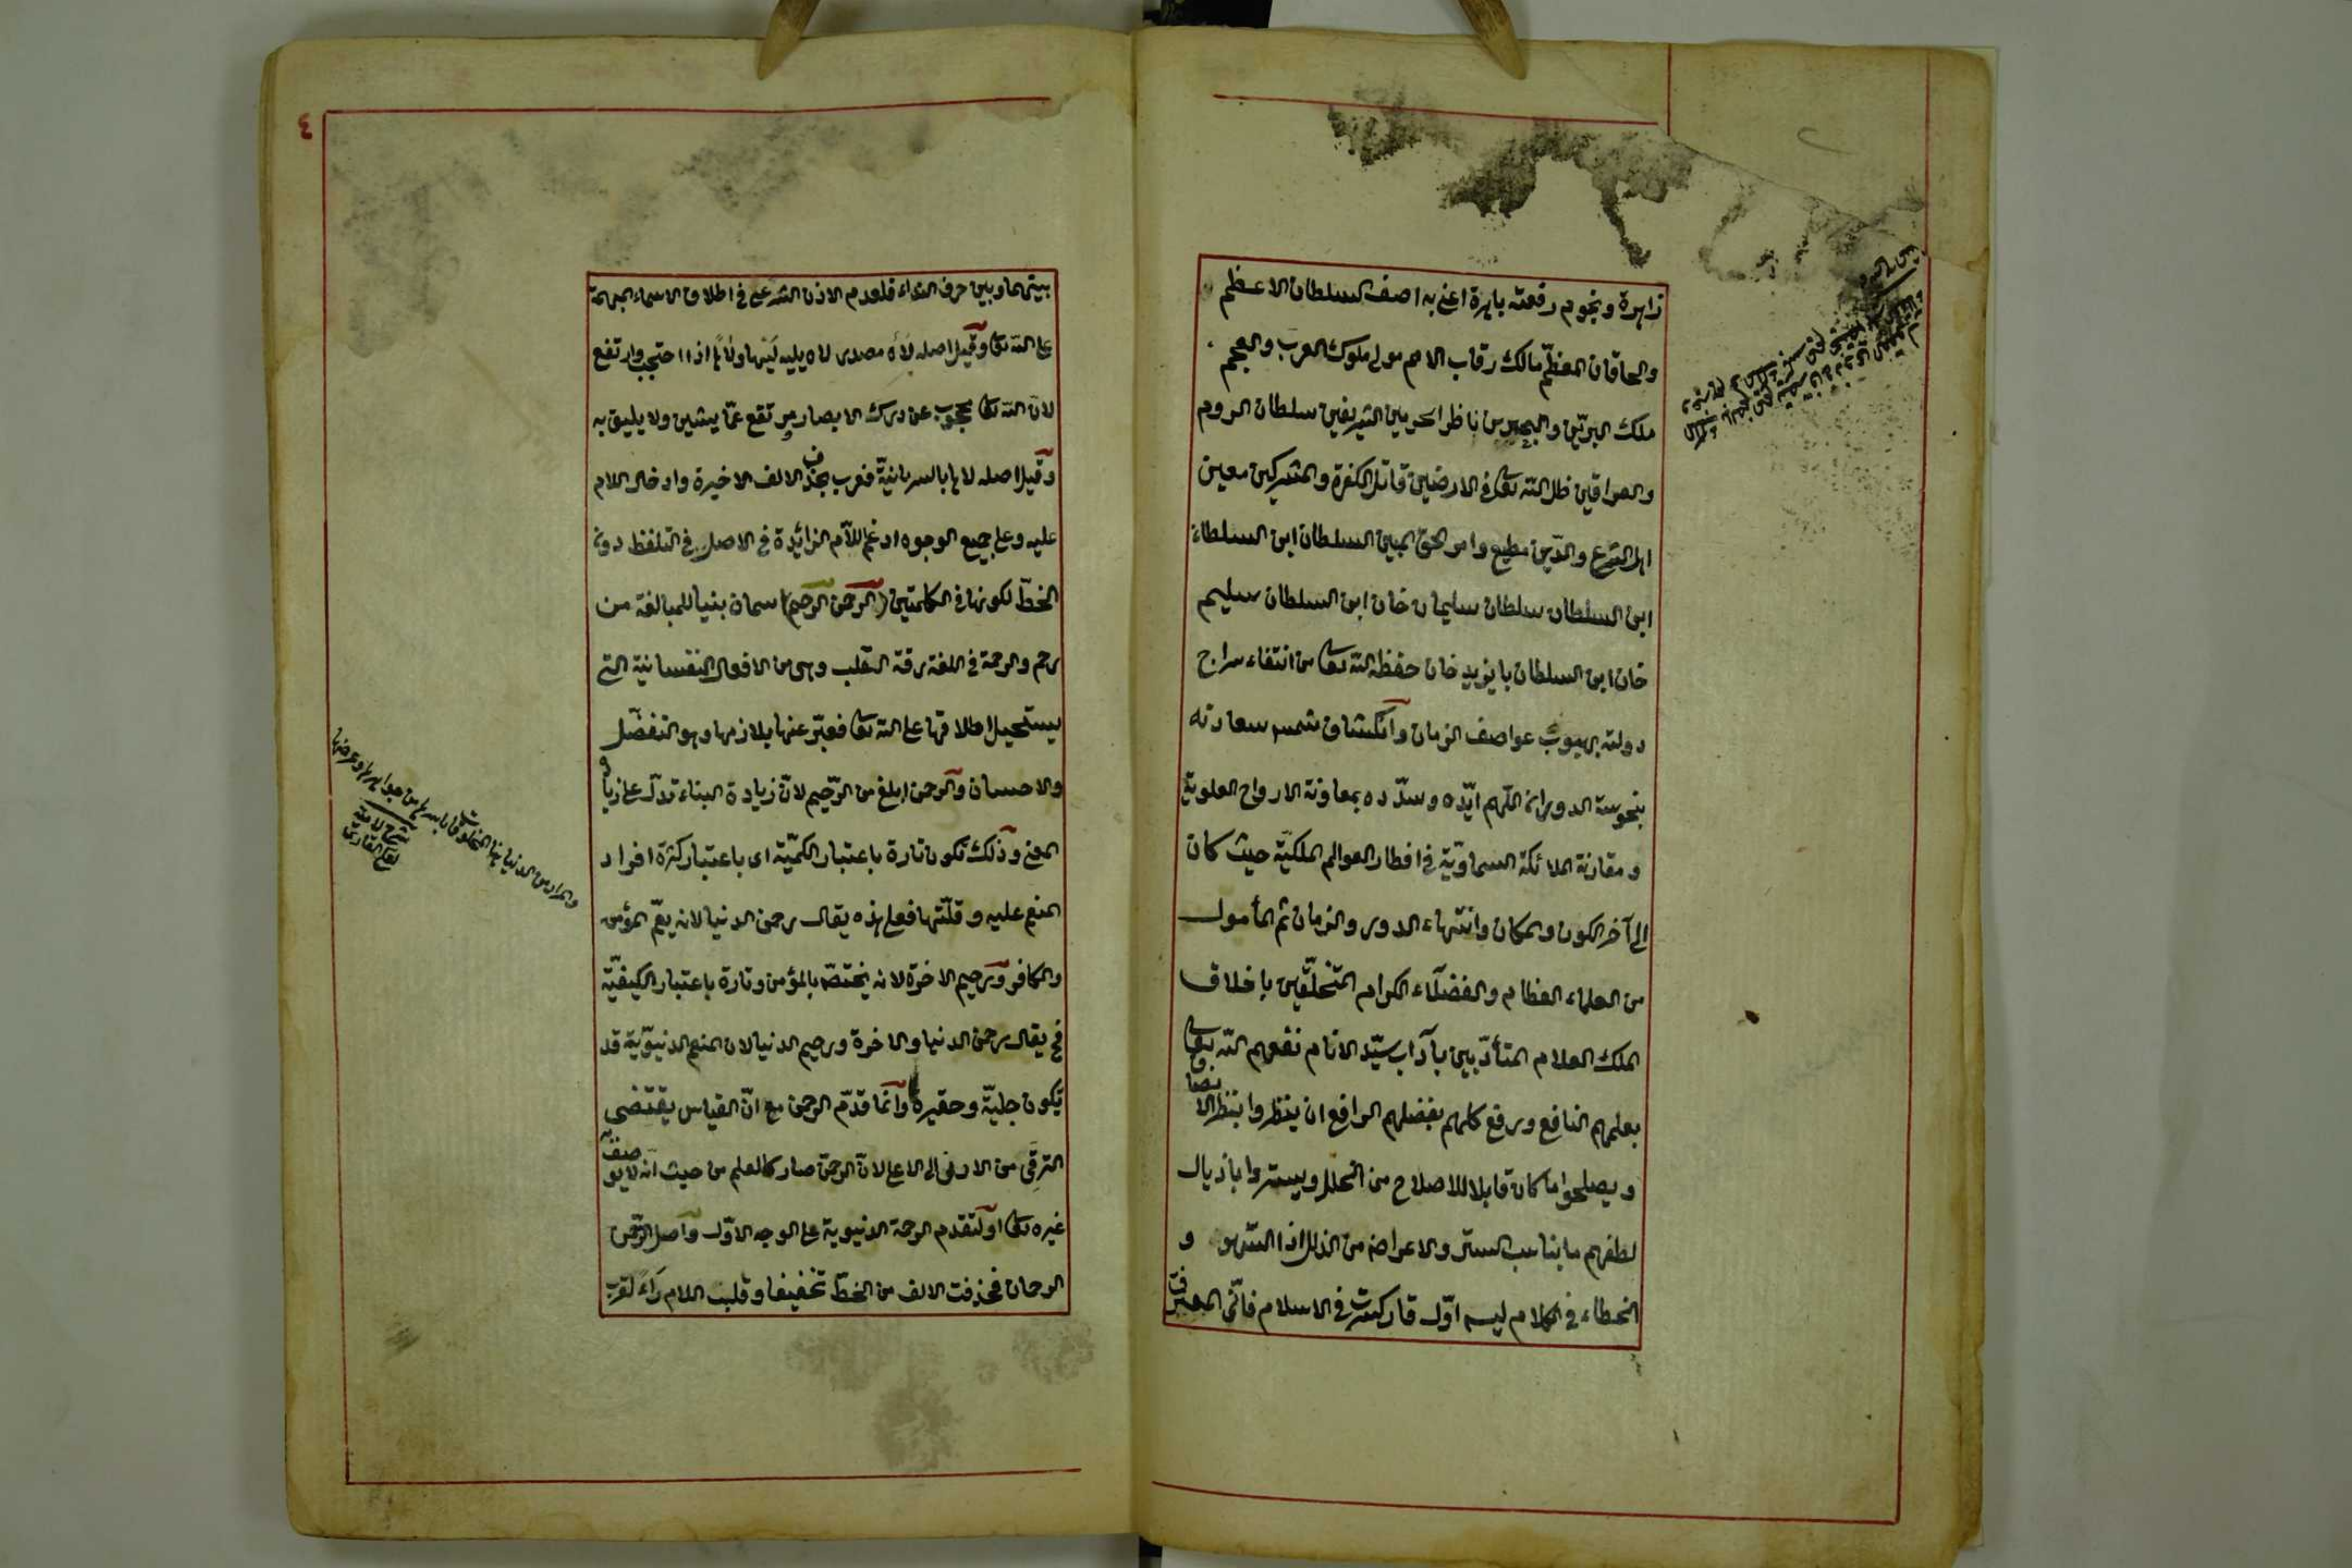 زاهرة ونجوم رفعته باهرة اعني به اصف السلطان الاعظم
والخاقان المعظّم مالك رقاب الامم مولى ملوك العرب والعجم
ملك البرّين والبحرين ناظر الحرمين الشريفين سلطان الروم
والعراقين ظل الله تعالى في الارضين قاتل الكفرة والمشركين معين
اهل الشرع والدّين مطيع وامر الحق المبين السلطان ابن السلطان
ابن السلطان سلطان سليمان خان ابن السلطان سليم
خان ابن السلطان بايزيد خان حفظه الله تعالى من انتفاء سراج
دولته بهبوب عواصف الزمان وانكشاف شمس سعادته
بنحوسة الدوران اللّهم ايّده وسدّده بمعاونة الارواح العلوية
ومقارنة الملائكة السماويّة في اقطار العوالم الملكيّة حيث كان
الى آخر الكون والمكان وانتهاء الدور والزمان ثم المأمول
من العلماء العظام والفضلاء الكرام المتخلّقين باخلاق
الملك العلام المتأدّبين بآداب سيّد الانام نفعهم الله تعالى
بعلمهم النافع ورفع كلمهم بفضلهم الرافع ان ينظروا بنظر الانصاف
ويصلحوا ما كان قابلا للاصلاح من الخلل ويستروا باذيال
لطفهم ما يناسب الستر والاعراض من الذلل اذا السهو و
الخطاء في الكلام ليس اوّل قارورة كسرت في الاسلام فانّي المعترف
٤
بينهما وبين حرف النداء فلعدم الاذن الشرعى في اطلاق الاسماء المبهمة
على الله تعالى وقيل اصله لاه مصدر لاه يليه ليها ولاها اذا احتجب وارتفع
لان الله تعالى محجوب عن درك الابصار مرتفع عمّا يشين ولا يليق به
وقيل اصله لاها بالسريانيّة فعرب بحذف الالف الاخيرة وادخال اللام
عليه وعلى جميع الوجوه ادغم اللام الزائدة في الاصل في التلفظ دون
الخطّ لكونها في الكلمتين (الرحمن الرحيم) اسمان بنيا للمبالغة من
رحم والرحمة في اللغة رقة القلب وهى من الافعال النفسانية التى
يستحيل اطلاقها على الله تعالى فعبّر عنها بلازمها وهو التفضّل
والاحسان والرحمن ابلغ من الرّحيم لانّ زيادة البناء تدلّ على زيادة
المعنى وذلك تكون تارة باعتبار الكمّيّة اى باعتبار كثرة افراد
المنعم عليه وقلّتها فعلى هذه يقال رحمن الدنيا لانه يعمّ المؤمن
والكافر ورحيم الاخرة لانه يختصّ بالمؤمن وتارة باعتبار الكيفيّة
فح يقال رحمن الدنيا والاخرة ورحيم الدنيا لان النعم الدنيويّة قد
تكون جليّة وحقيرة وانما قدّم الرحمن مع انّ القياس يقتضى
الترقّى من الادنى الى الاعلى لانّ الرحمن صار كالعلم من حيث انه لا يوصف به
غيره تعالى او لتقدم الرحمة الدنيوية على الوجه الاوّل واصل الرّحمن
الرحمان فحذفت الالف من الخطّ تخفيفا وقلبت اللام راءً لقرب
والمراد من الدنيا هنا المخلوقات باسرها من جواهرها وعرضها
شرح لامية
لعلي القاري